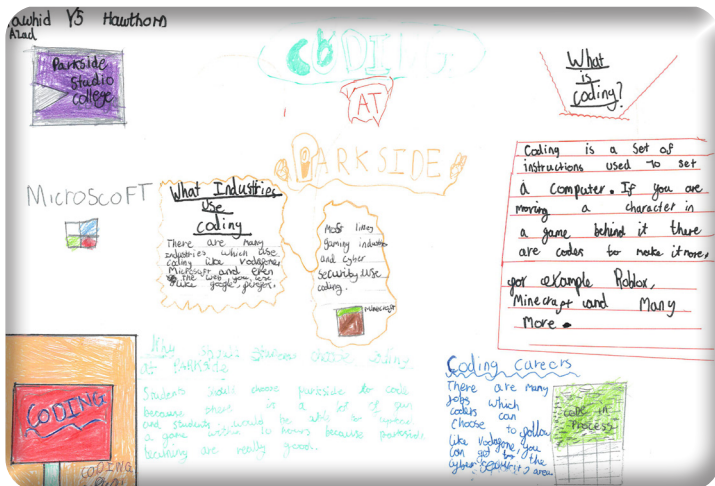 awhid Y5 Hawthorn
Azad
Parkside
Studio
College
CODING
AT
PARKSIDE
What
is
coding?
Coding is a set of
instructions used to set
a computer. If you are
moving a character in
a game behind it there
are codes to make it move,
for example Roblox,
Minecraft and Many
More.
MICROSCOFT
What Industries
use
coding
There are many
industries which use
coding like Vodafone
Microsoft and even
the web you use
like google,
Most likley
gaming industries
and cyber
security use
coding.
MINECRAFT
Why should students choose coding
at PARKSIDE
Students should choose parkside to code
because there is a lot of fun
and students would be able to
a game within 10 hours because parkside
learning are really good.
Coding Careers
There are many
jobs which
coders can
choose to follow
like Vodafone, you
can go to the
cyber security area
code in
process
CODING
CODING